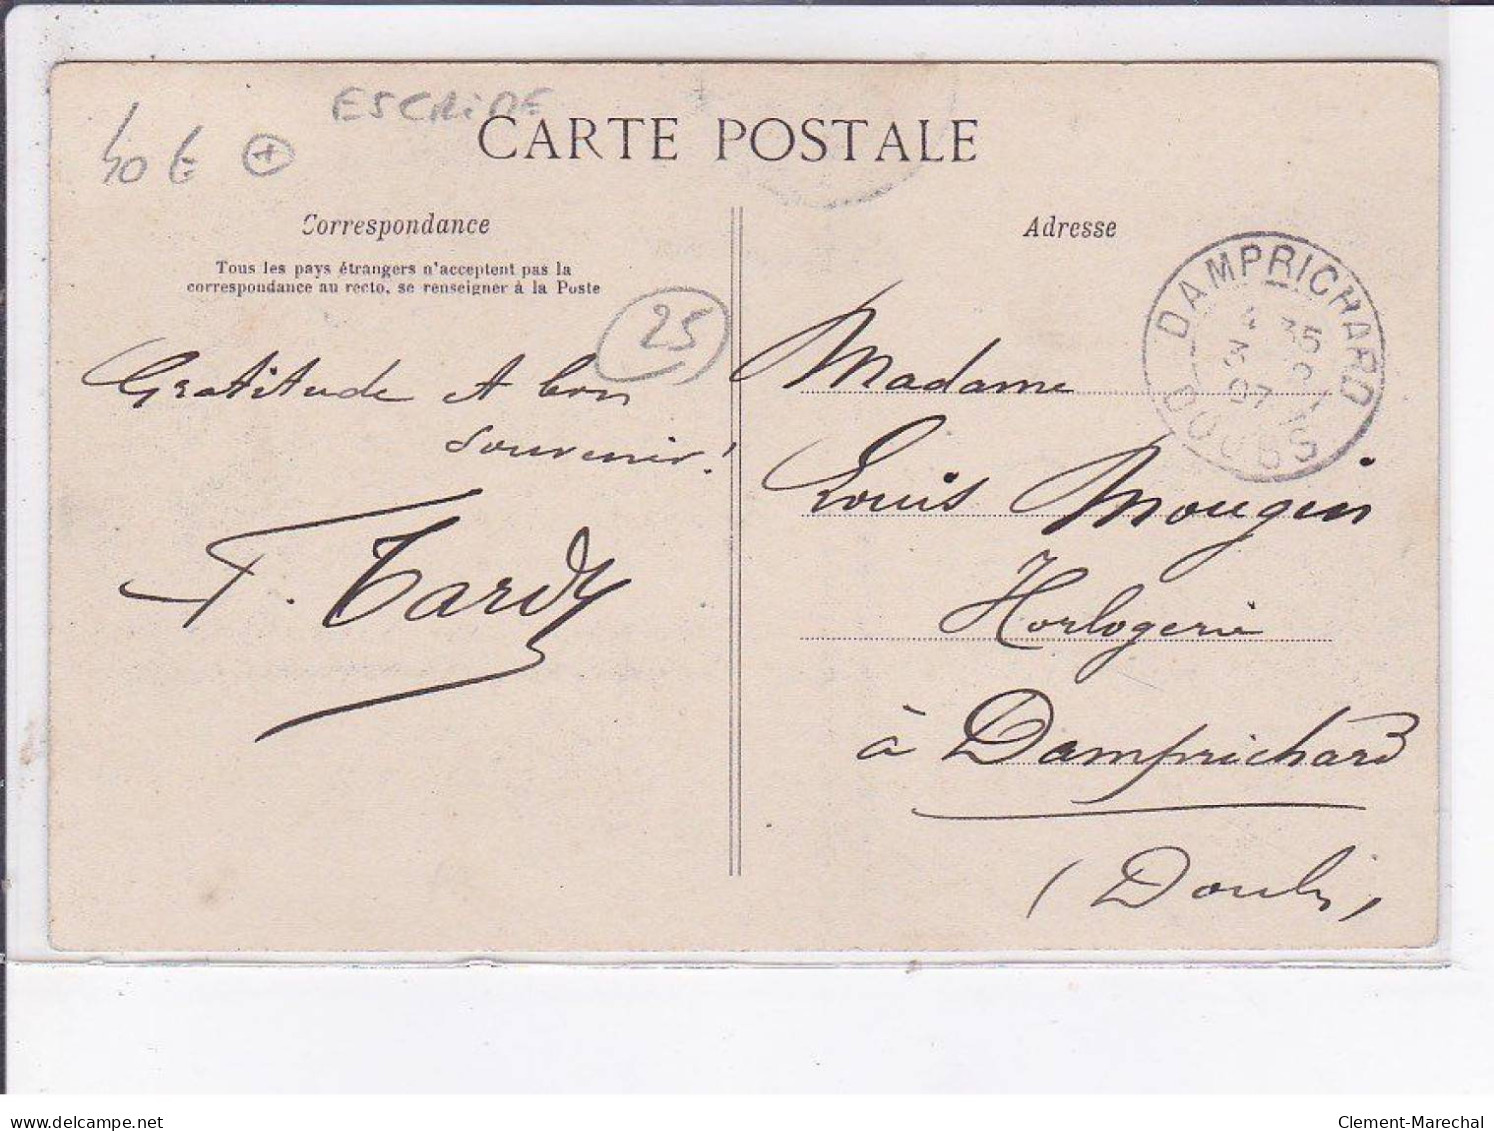 ESCRIME
40 €
+
CARTE POSTALE
Correspondance
Tous les pays étrangers n'acceptent pas la
correspondance au recto, se renseigner à la Poste
25
Gratitude et bon
souvenir!
F. Tardy
Adresse
DAMPRICHARD
DOUBS
Madame
Louis Mougin
Horlogerie
à Damprichard
(Doubs,
delcampe.net
Clement-Marechal